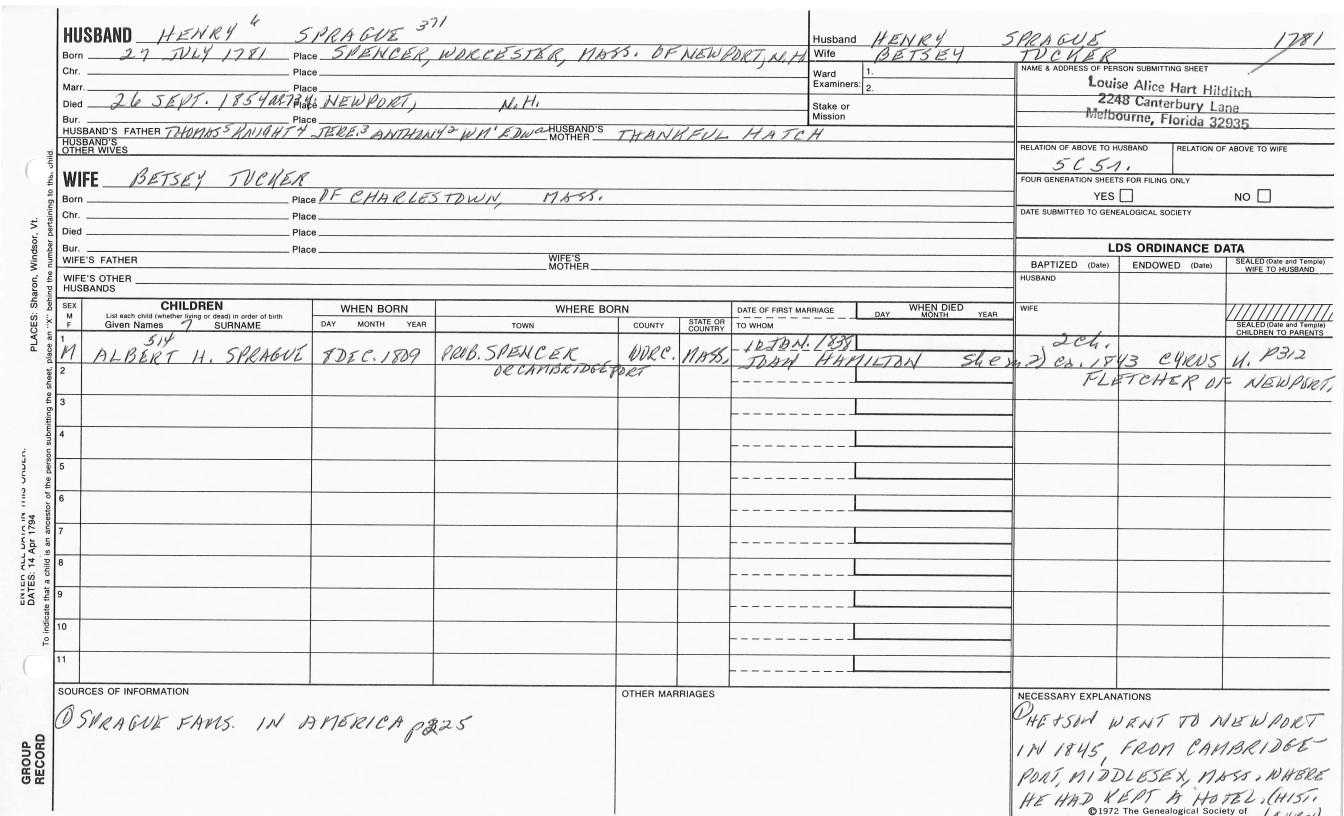 HUSBAND HENRY 6 SPRAGUE 371
Born 27 JULY 1781 Place SPENCER, WORCESTER, MASS. OF NEWPORT, N.H.
Chr. Place
Marr. Place
Died 26 SEPT. 1854 Place NEWPORT, N.H.
Bur.
HUSBAND'S FATHER THOMAS5 KNIGHT4 JERE.3 ANTHONY2 WM1 EDWa HUSBAND'S MOTHER THANKFUL HATCH
HUSBAND'S OTHER WIVES
Husband HENRY SPRAGUE 1781
Wife BETSEY TUCKER
Ward Examiners: 1.
2.
Stake or Mission
NAME & ADDRESS OF PERSON SUBMITTING SHEET
Louise Alice Hart Hilditch
2248 Canterbury Lane
Melbourne, Florida 32935
RELATION OF ABOVE TO HUSBAND RELATION OF ABOVE TO WIFE
5C5r.
FOUR GENERATION SHEETS FOR FILING ONLY
YES NO
DATE SUBMITTED TO GENEALOGICAL SOCIETY
WIFE BETSEY TUCKER
Born Place OF CHARLESTOWN, MASS.
Chr. Place
Died Place
Bur. Place
WIFE'S FATHER WIFE'S MOTHER
WIFE'S OTHER HUSBANDS
LDS ORDINANCE DATA
BAPTIZED (Date) ENDOWED (Date) SEALED (Date and Temple) WIFE TO HUSBAND
HUSBAND
WIFE
SEALED (Date and Temple) CHILDREN TO PARENTS
SEX M F
CHILDREN
List each child (whether living or dead) in order of birth
Given Names 7 SURNAME
WHEN BORN
DAY MONTH YEAR
WHERE BORN
TOWN COUNTY STATE OR COUNTRY
DATE OF FIRST MARRIAGE
TO WHOM
WHEN DIED
DAY MONTH YEAR
1 514 10 JAN. 1838 2 ch.
M ALBERT H. SPRAGUE 8 DEC. 1809 PROB. SPENCER WORC. MASS. JOAN HAMILTON She m. 2) ca. 1843 CYRUS U. P312
2 OR CAMBRIDGEPORT FLETCHER OF NEWPORT.
3
4
5
6
7
8
9
10
11
SOURCES OF INFORMATION
① SPRAGUE FAMS. IN AMERICA p225
OTHER MARRIAGES
NECESSARY EXPLANATIONS
① HE + SON WENT TO NEWPORT
IN 1845, FROM CAMBRIDGE-
PORT, MIDDLESEX, MASS. WHERE
HE HAD KEPT A HOTEL. (HIST.
©1972 The Genealogical Society of
PLACES: Sharon, Windsor, Vt.
ENTER ALL DATA IN THIS ORDER:
DATES: 14 Apr 1794
To indicate that a child is an ancestor of the person submitting the sheet, place an "X" behind the number pertaining to this child.
GROUP RECORD